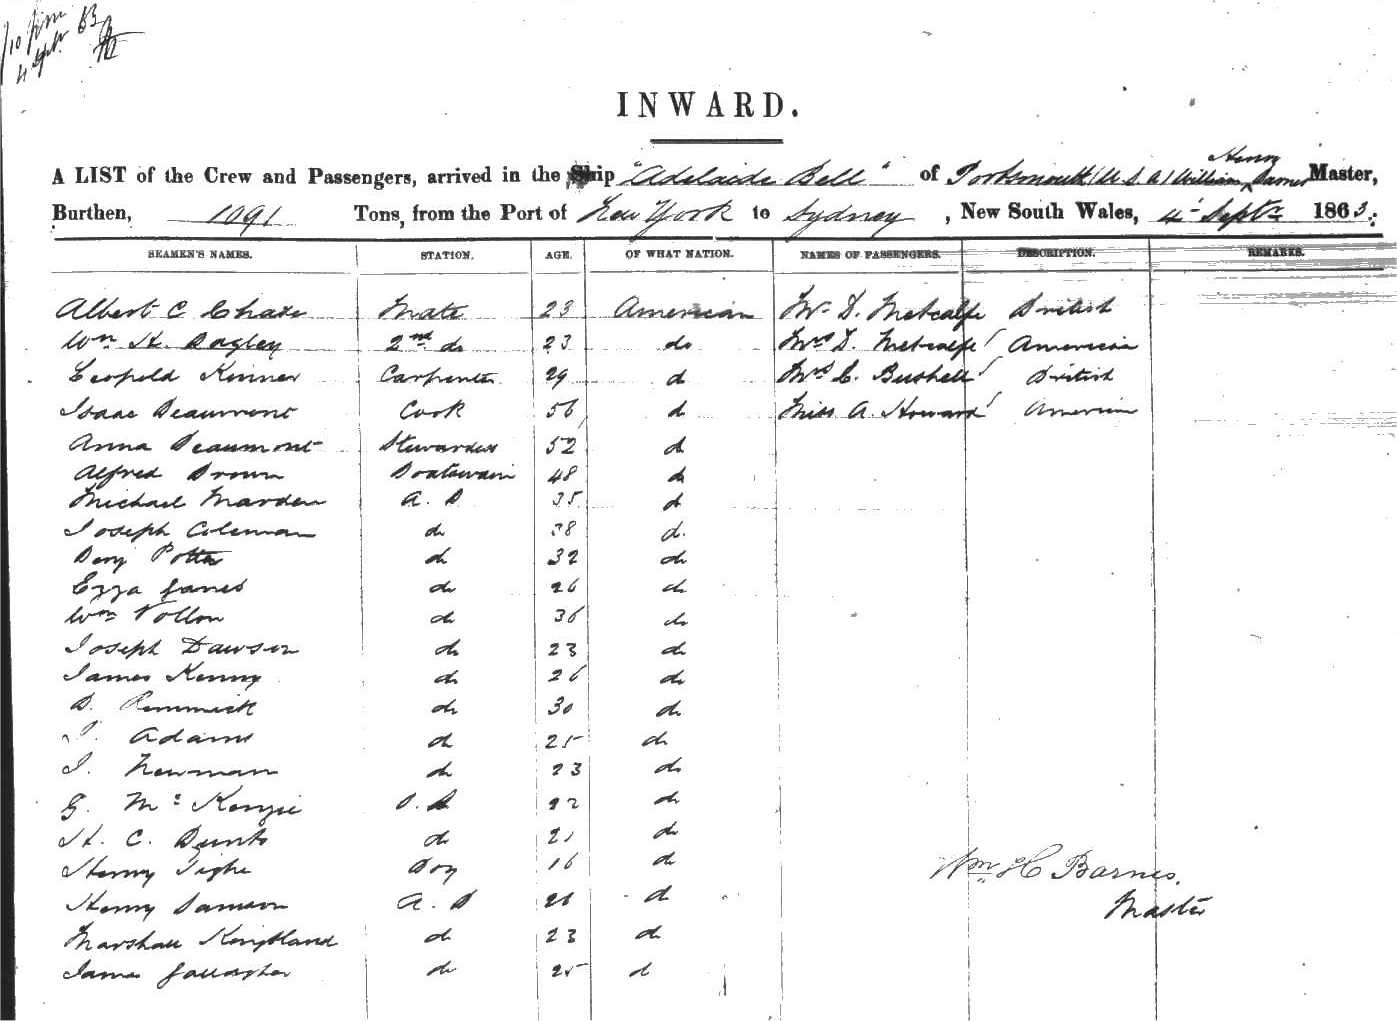 4 Sept 63
INWARD.
A LIST of the Crew and Passengers, arrived in the Ship "Adelaide Bell" of Portsmouth (U.S.A) William Henry Barnes Master,
Burthen, 1091 Tons, from the Port of New York to Sydney, New South Wales, 4 Septr 1863.
SEAMEN'S NAMES. STATION. AGE. OF WHAT NATION. NAMES OF PASSENGERS. DESCRIPTION. REMARKS.
Albert C Chase Mate 23 American Mr D. Metcalfe British
Wm H. Bagley 2nd do 23 do Mrs D. Metcalfe American
Leopold Kinner Carpenter 29 d Mrs C. Bushell British
Isaac Beaumont Cook 56 d Miss A. Howard American
Anna Beaumont Stewardess 52 d
Alfred Brown Boatswain 48 d
Michael Marden A. B 35 d
Joseph Coleman do 38 d.
Benj Potter do 32 do
Ezza James do 26 do
Wm Vollon do 36 do
Joseph Dawson do 23 do
James Kenny do 26 do
B. Remmick do 30 do
Adams do 25 do
J. Newman do 23 do
G. McKenzie O.S 22 do
H. C. Bunts do 21 do
Henry Tighe Boy 16 do
Wm H C Barnes.
Henry Samson A. B 26 d
Master
Marshall do 23 d
James Gallagher do 25 d